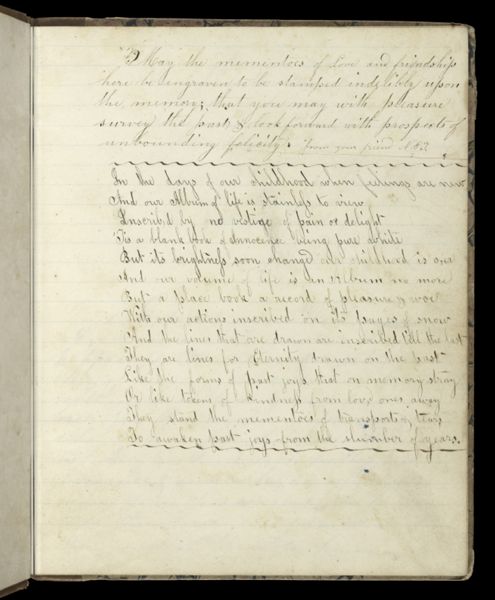 May the mementoes of Love and friendship
here be engraven to be stamped indelibly upon
the memory; that you may with pleasure
survey the past, & look forward with prospects of
unbounding felicity. From your friend
In the days of our childhood when feelings are new
And our Album of life is stainless to view
Inscrib'd by no vestige of pain or delight
Tis a blank book of innocence being pure white
But its brightness soon changed our childhood is oer
And our volume of life is an Album no more
But a place book a record of pleasure & woe
With our actions inscribed on its pages of snow
And the lines that are drawn are inscribed till the last
They are lines for Eternity drawn on the past
Like the forms of past joys that on memory stray
Or like tokens of kindness from love ones away
They stand the mementoes of transport & tears
To awaken past joys from the slumber of years.